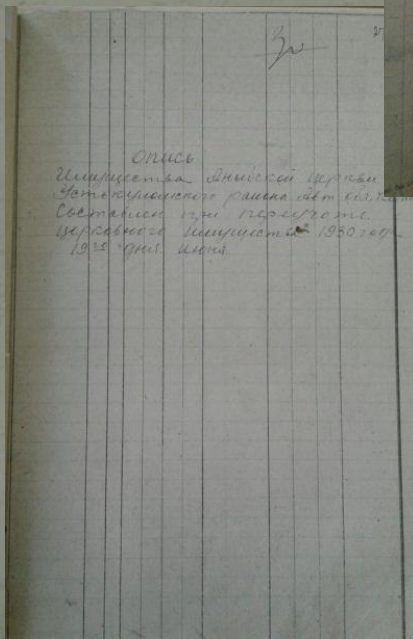 Опись
Имущества Аныбской церкви
Устькуломского района Авт обл.
Составлен при переучоте
церковного имущества 1930 года
19го дня июня